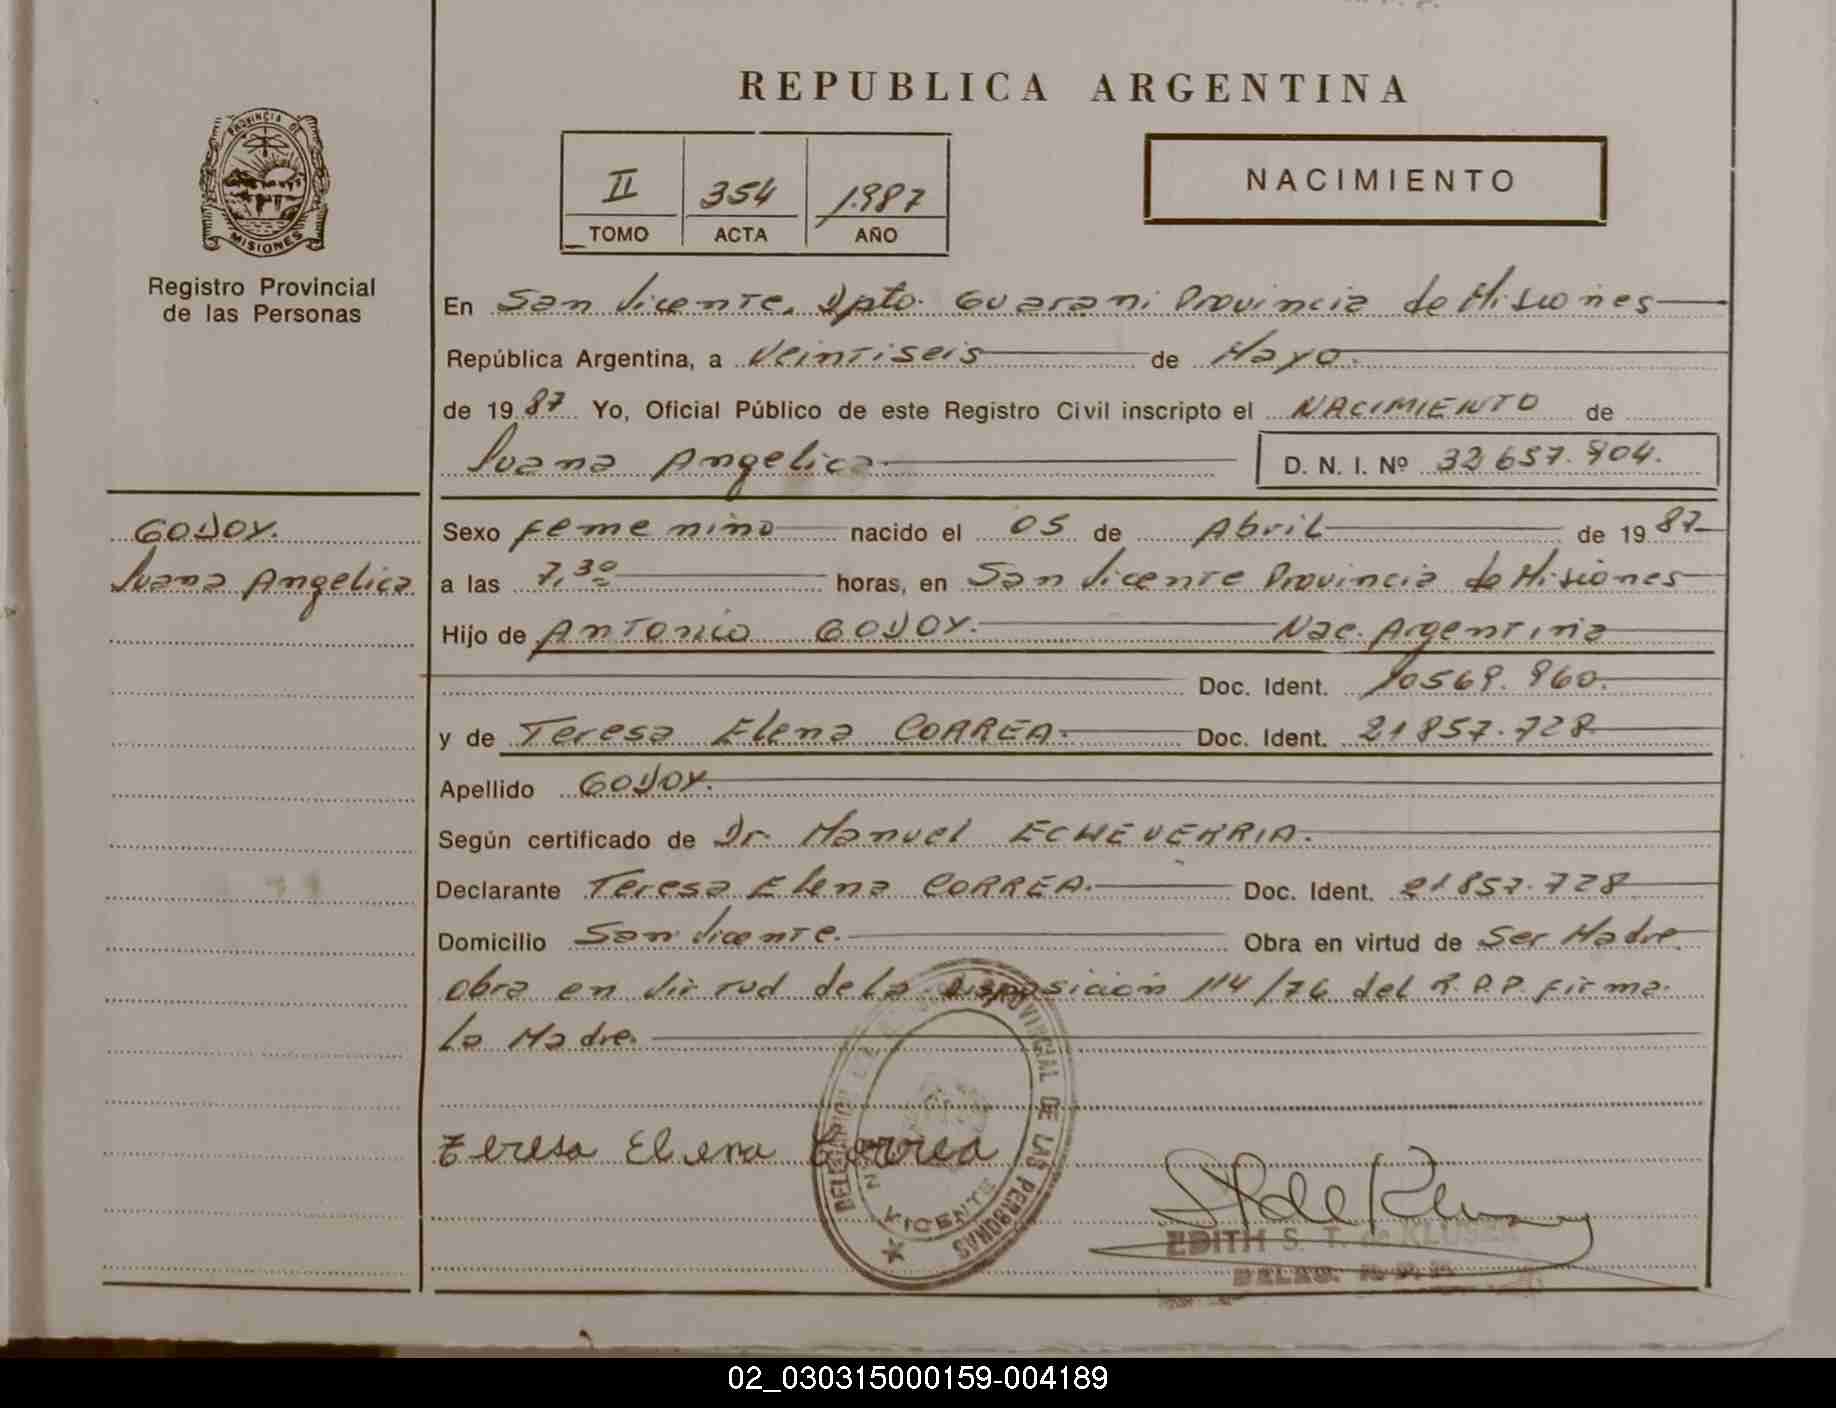 REPUBLICA ARGENTINA
PROVINCIA DE
MISIONES
Registro Provincial
de las Personas
II 354 1987
TOMO ACTA AÑO
NACIMIENTO
En San Vicente, Dpto. Guarani Provincia de Misiones
República Argentina, a Veintiseis de Mayo.
de 19 87 Yo, Oficial Público de este Registro Civil inscripto el NACIMIENTO de
Juana Angelica D. N. I. Nº 32 657.904.
GODOY.
Juana Angelica
Sexo femenino nacido el 05 de Abril de 19 87
a las 7,30 horas, en San Vicente Provincia de Misiones
Hijo de Antonio GODOY. Nac. Argentina
Doc. Ident. 10569.960.
y de Teresa Elena CORREA. Doc. Ident. 21857.728
Apellido GODOY.
Según certificado de Dr. Manuel ECHEVERRIA.
Declarante Teresa Elena CORREA. Doc. Ident. 21857.728
Domicilio San Vicente. Obra en virtud de Ser Madre
Obra en Virtud de la Disposición 114/76 del R.P.P. firma
la Madre.
Teresa Elena Correa
PROVINCIAL DE LAS PERSONAS
VICENTE
EDITH S. T. de KLUSER
02_030315000159-004189